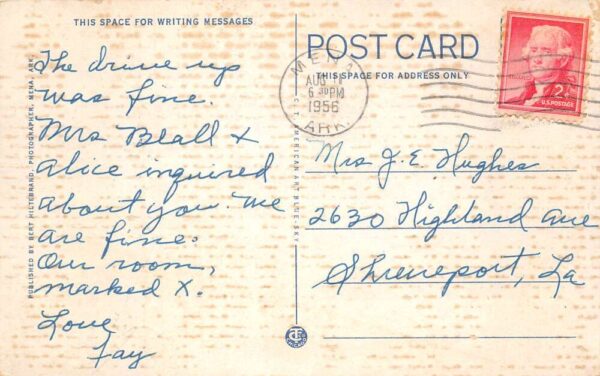 THIS SPACE FOR WRITING MESSAGES
The drive up
was fine.
Mrs Beall &
Alice inquired
about you. We
are fine.
Our room,
marked X.
Love
Fay
PUBLISHED BY BERT HILTEBRAND, PHOTOGRAPHER, MENA, ARK.
C. T. AMERICAN ART BLUE-SKY
POST CARD
THIS SPACE FOR ADDRESS ONLY
MENA
AUG
6 30 PM
1956
ARK.
2¢
U.S. POSTAGE
Mrs J. E. Hughes
2630 Highland Ave
Shreveport, La